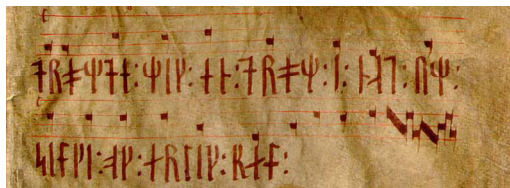 ᛑᚱᚯᛘᛑᛂ᛬ᛘᛁᚴ᛬ᛂᚿ᛬ᛑᚱᚯᛘ᛬ᛁ᛬ᚿᛆᛐ᛬ᚢᛘ᛬
ᛋᛁᛚᚴᛁ᛬ᚮᚴ᛬ᛅᚱᛚᛁᚴ᛬ᛔᛅᛚ᛬